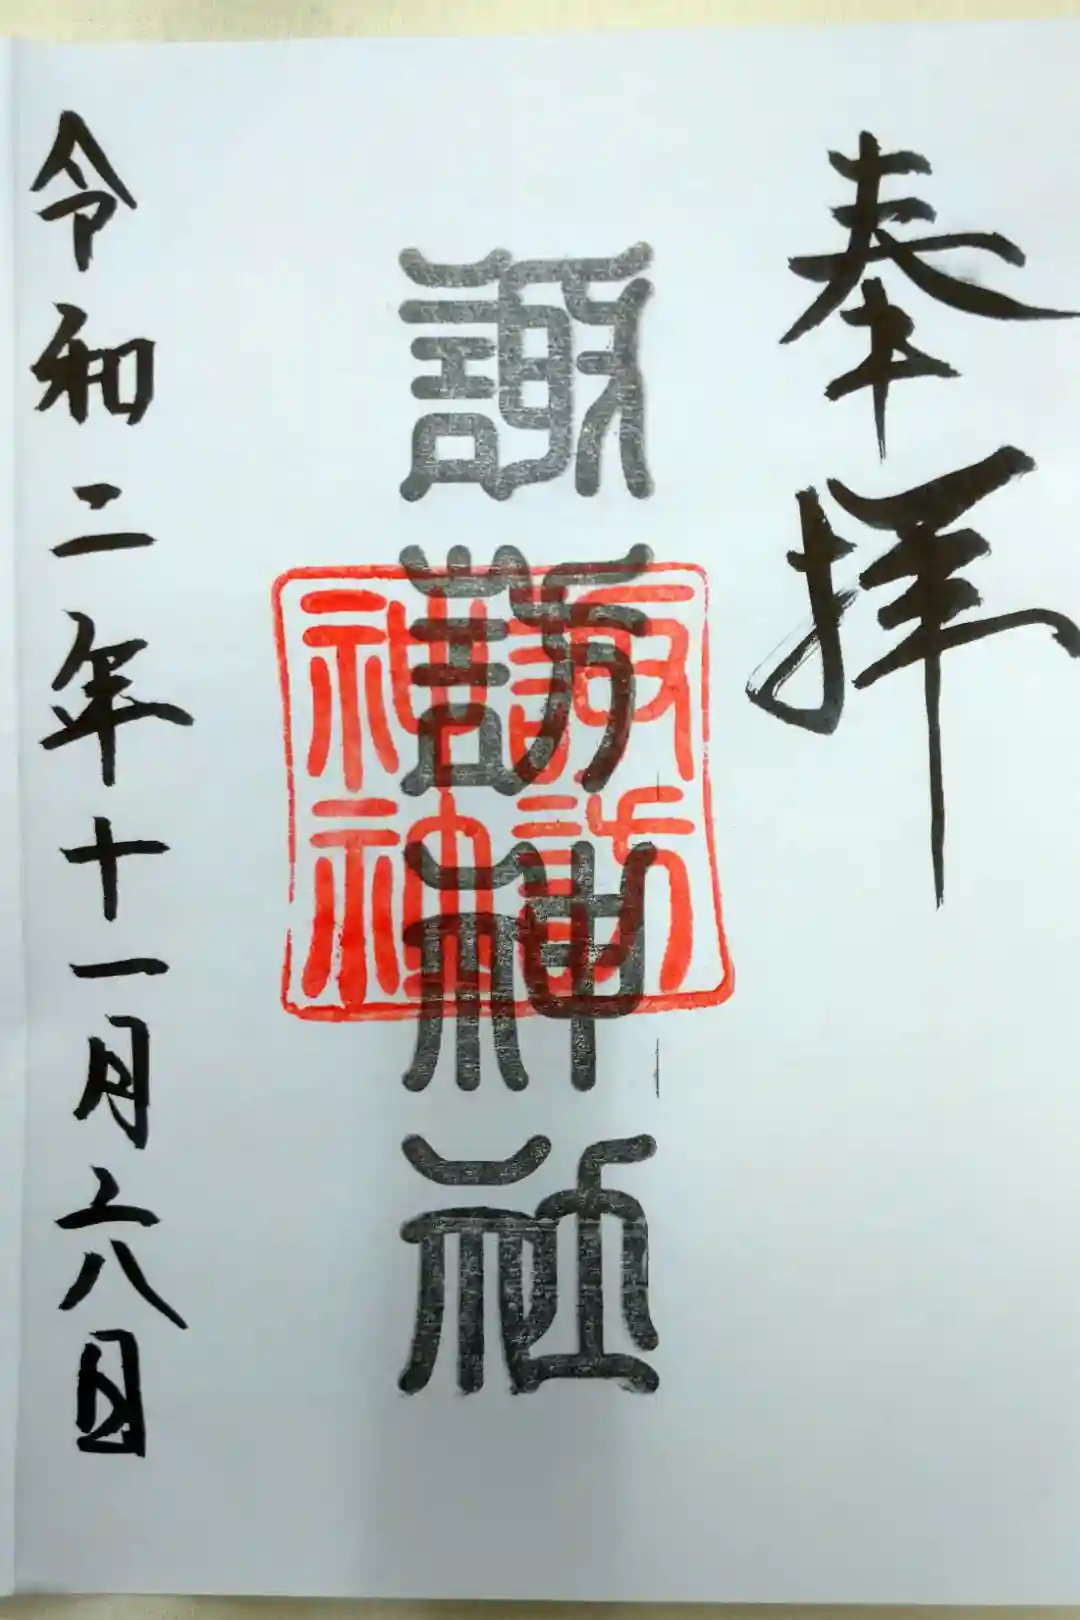 奉拝
諏訪神社
諏訪
神社
令和二年十一月二八日